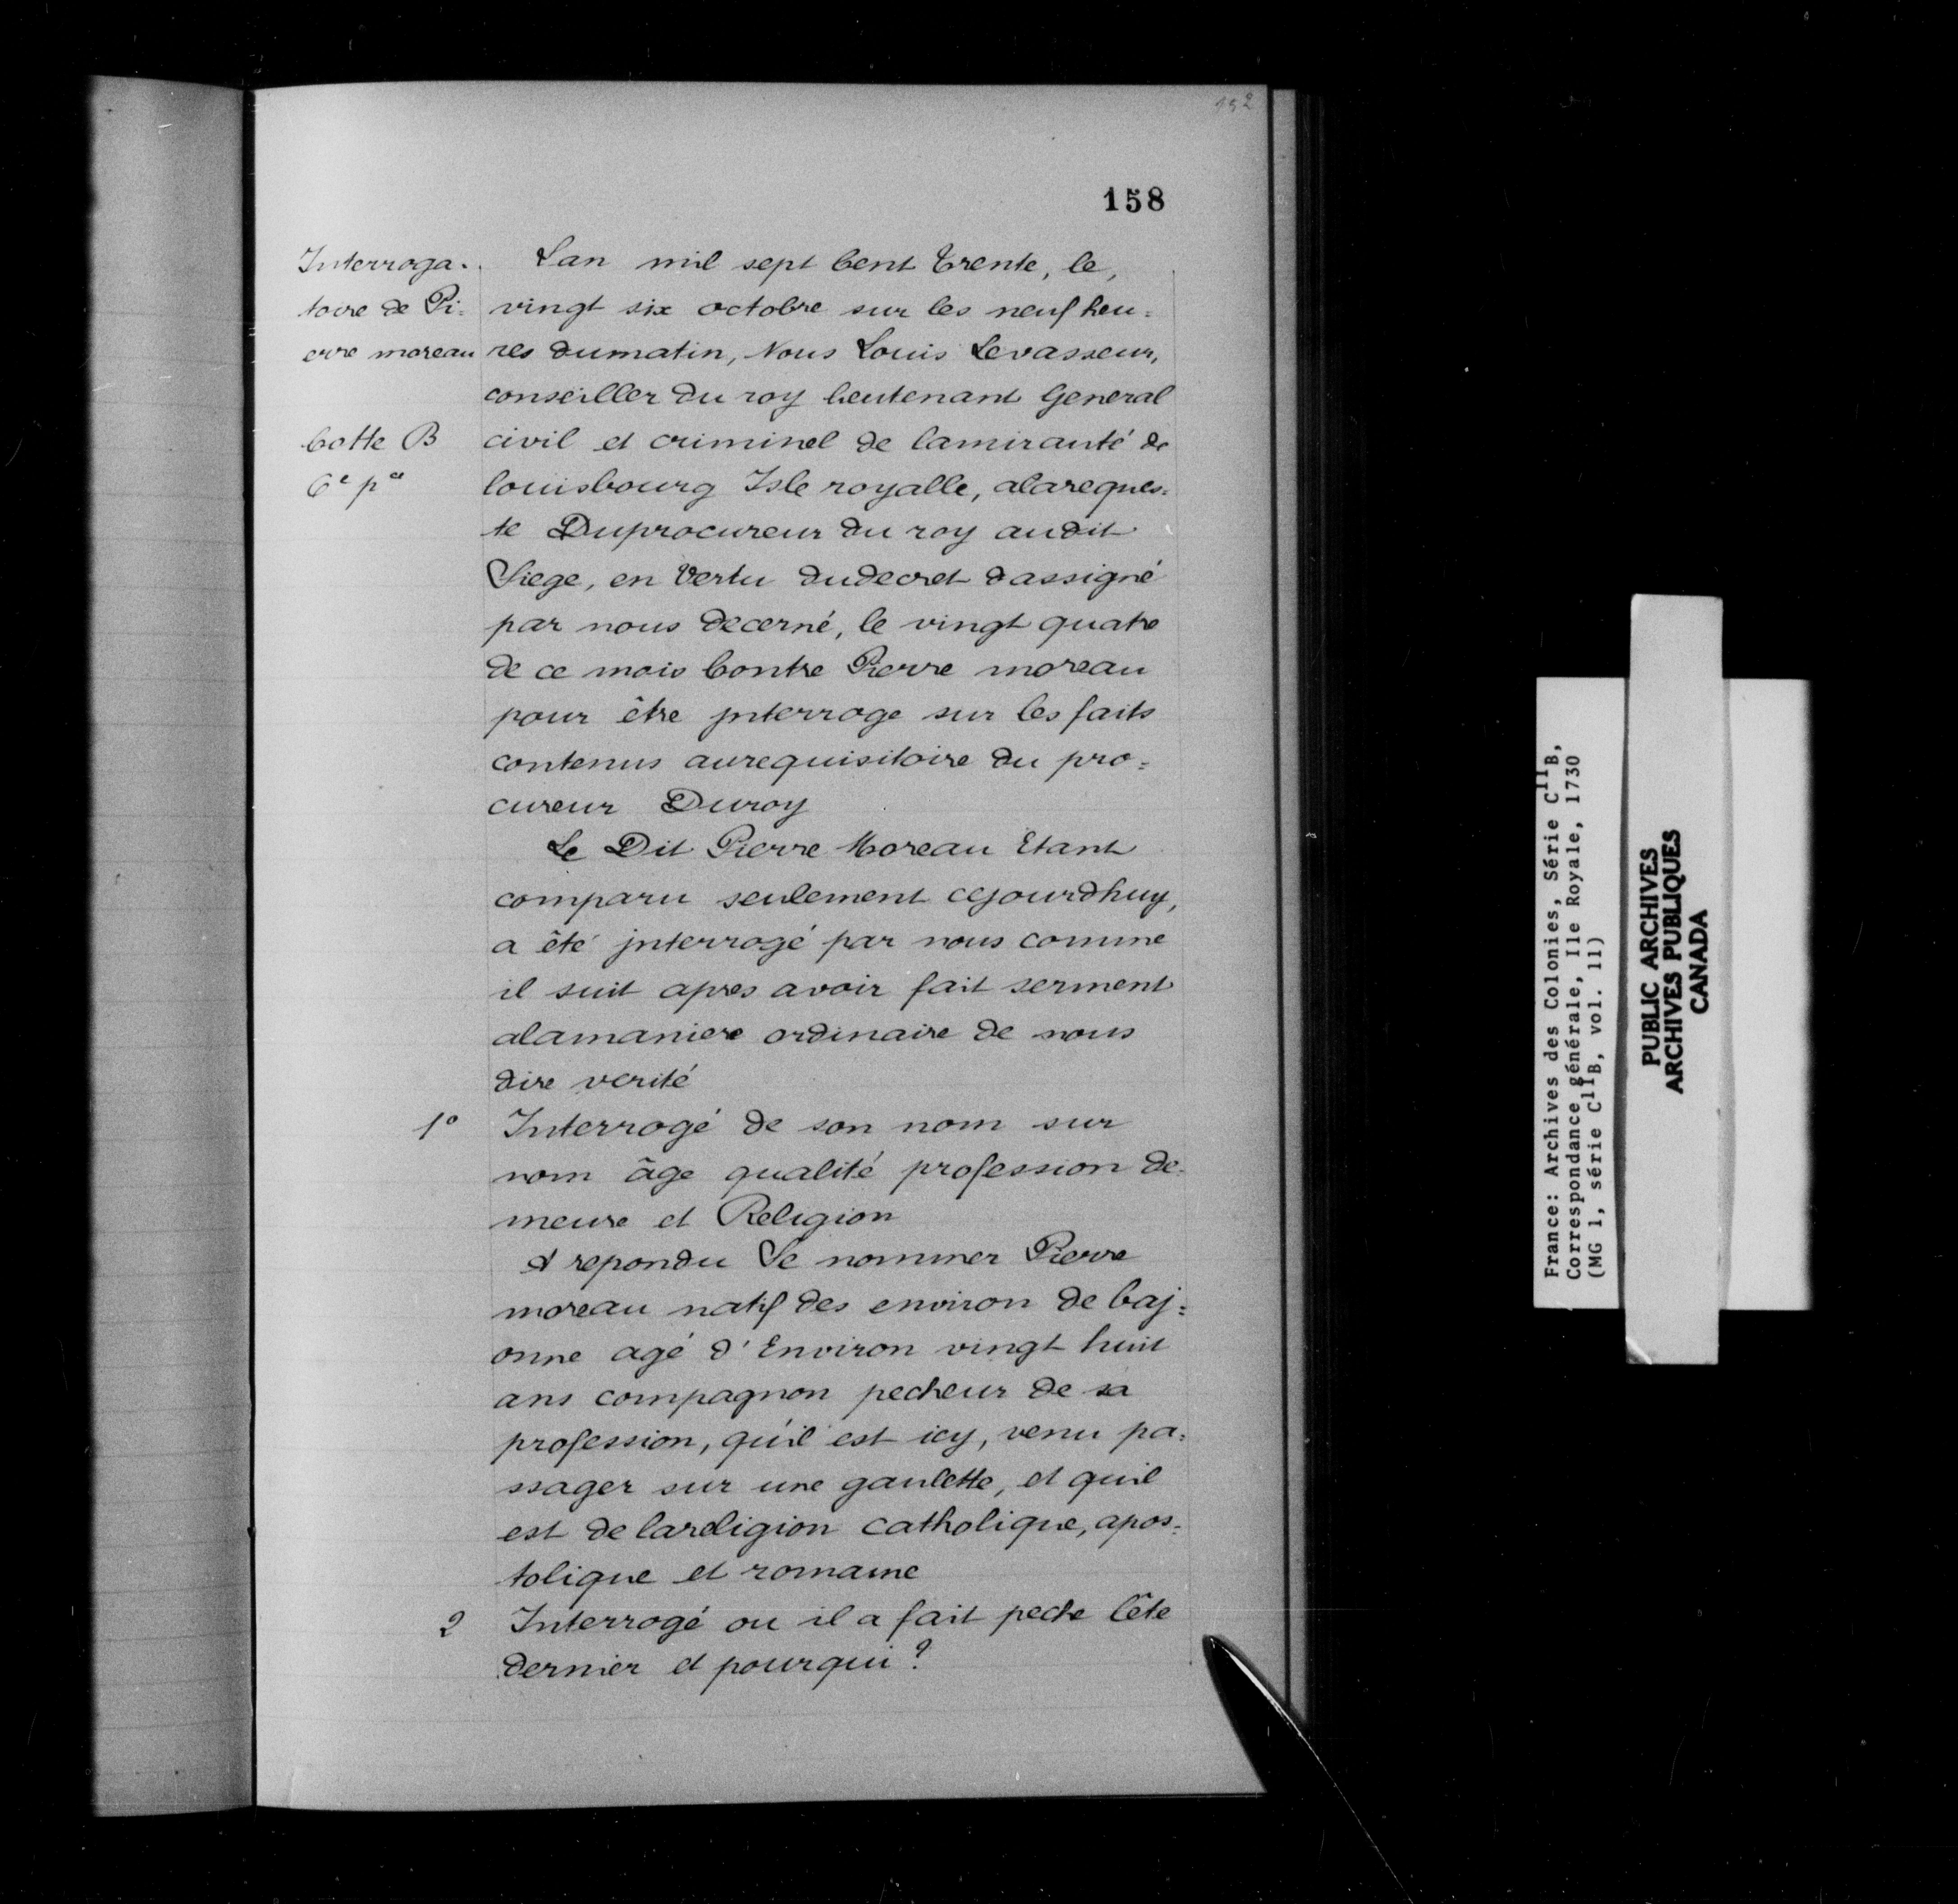 152
158
Interroga-
toire de Pi=
erre moreau
Cotte B
6e pce
Lan mil sept Cent trente, le,
vingt six octobre sur les neuf heu=
res dumatin, Nous Louis Levasseur,
conseiller du roy lieutenant General
civil et criminel de lamirauté de
louisbourg Isle royalle, alareques=
te Duprocureur du roy audit
Siege, en Vertu dudecret dassigné
par nous decerné, le vingt quatre
de ce mois Contre Pierre moreau
pour être jnterroge sur les faits
contenus aurequisitoire du pro=
cureur Duroy
Le Dit Pierre Moreau Etant
comparu seulement cejourdhuy,
a êté jnterrogé par nous comme
il suit apres avoir fait serment
alamaniere ordinaire de nous
dire verité
1º Interrogé de son nom sur
nom âge qualité profession de=
meure et Religion
A repondu Se nommer Pierre
moreau natif des environ de baj=
onne agé d'Environ vingt huit
ans compagnon pecheur de sa
profession, qu'il est icy, venu pa=
ssager sur une gaulette, et quil
est de lareligion catholique, apos=
tolique et romaine
2 Interrogé ou il a fait peche lête
dernier et pourqui?
France: Archives des Colonies, Série C11B,
Correspondance générale, Ile Royale, 1730
(MG 1, série C11B, vol. 11)
PUBLIC ARCHIVES
ARCHIVES PUBLIQUES
CANADA